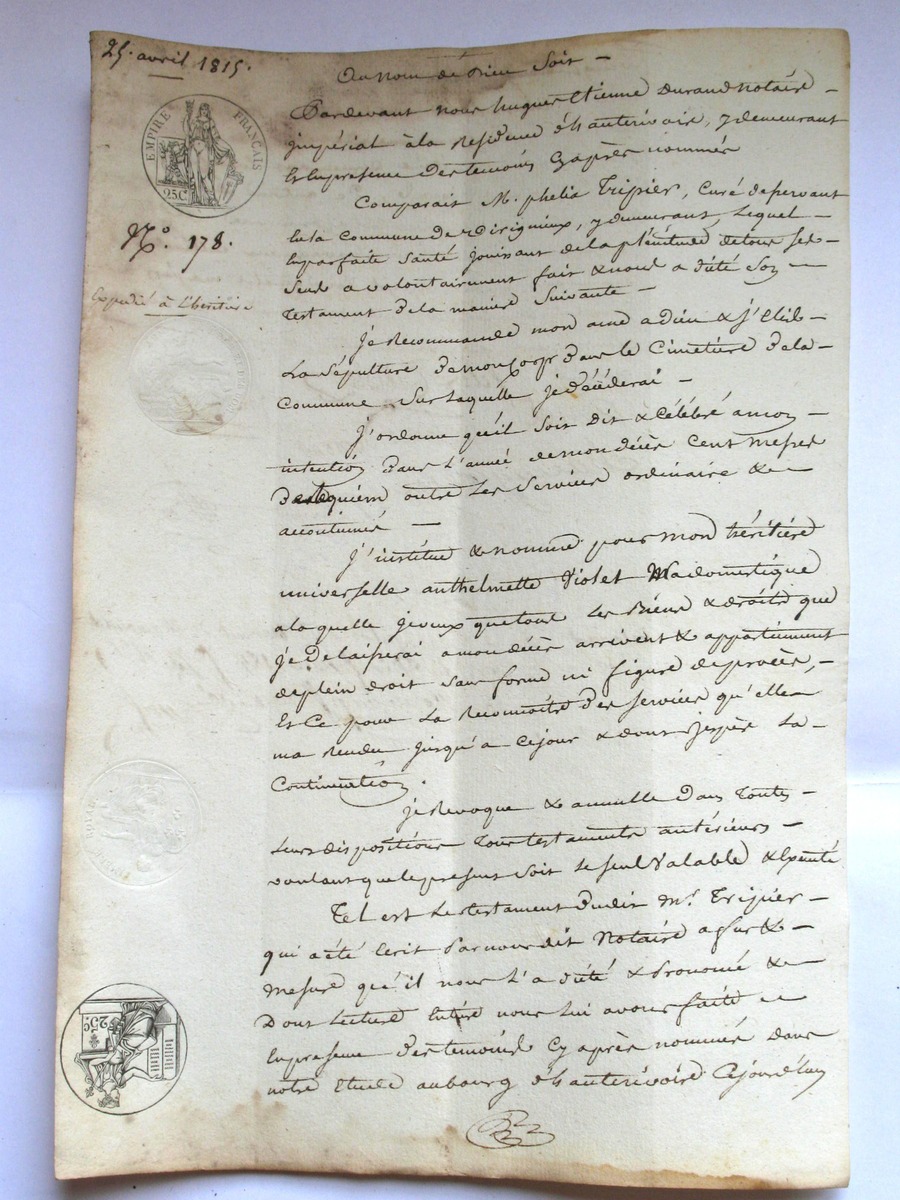 25. avril 1815.
EMPIRE FRANÇAIS
25C
N.º 178.
Expedié à L'heritière
Au Nom de Dieu Soit —
Pardevant nous hugues Etienne Durand notaire —
jmpérial à la Residence d'hauterivoire, y demeurant
Et En presence des temoins Cy après nommés
Comparait M. Tripier, Curé deservant
En la Commune de , y demeurant, Lequel —
En parfaite Santé jouissant de la plénitude de tous Ses —
Sens a volontairement fait & nous a dicté Son —
Testament De la maniere Suivante —
je Recommande mon ame a Dieu & j'Elis —
La Sépulture De mon Corps Dans le Cimetière De la —
Commune Sur Laquelle je décéderai —
j'ordonne qu'il Soit Dit & Célébré a mon —
intention Dans L'année de mon décès Cent Messes
De Requiem outre Les Services ordinaire & —
accoutumés —
j'institue & nomme pour mon héritière
universelle anthelmette Violet Ma domestique
a la quelle je veux que tous Les Biens & droits que
je Delaisserai a mon décès arrivent & appartiennent
de plein droit Sans forme ni figure de procès, —
Et Ce pour La Reconnoitre Des Services qu'elle —
ma Rendu jusqu'a Ce jour & dont j'espère La —
Continuation.
je Revoque & annulle Dans Toutes —
Leurs dispositions Tous testaments antérieurs —
voulant que le present Soit le seul Valable & Executé
Tel est Le testament Dudit Mr. Tripier —
qui a été Ecrit Par nous dit Notaire a fur & —
Mesure qu'il nous L'a dicté & Prononcé & —
Dont Lecture Entière nous Lui avons faite —
En presence Des temoins Cy après nommés dans
notre Etude au bourg d'hauterivoire Ce jourd'huy
25C